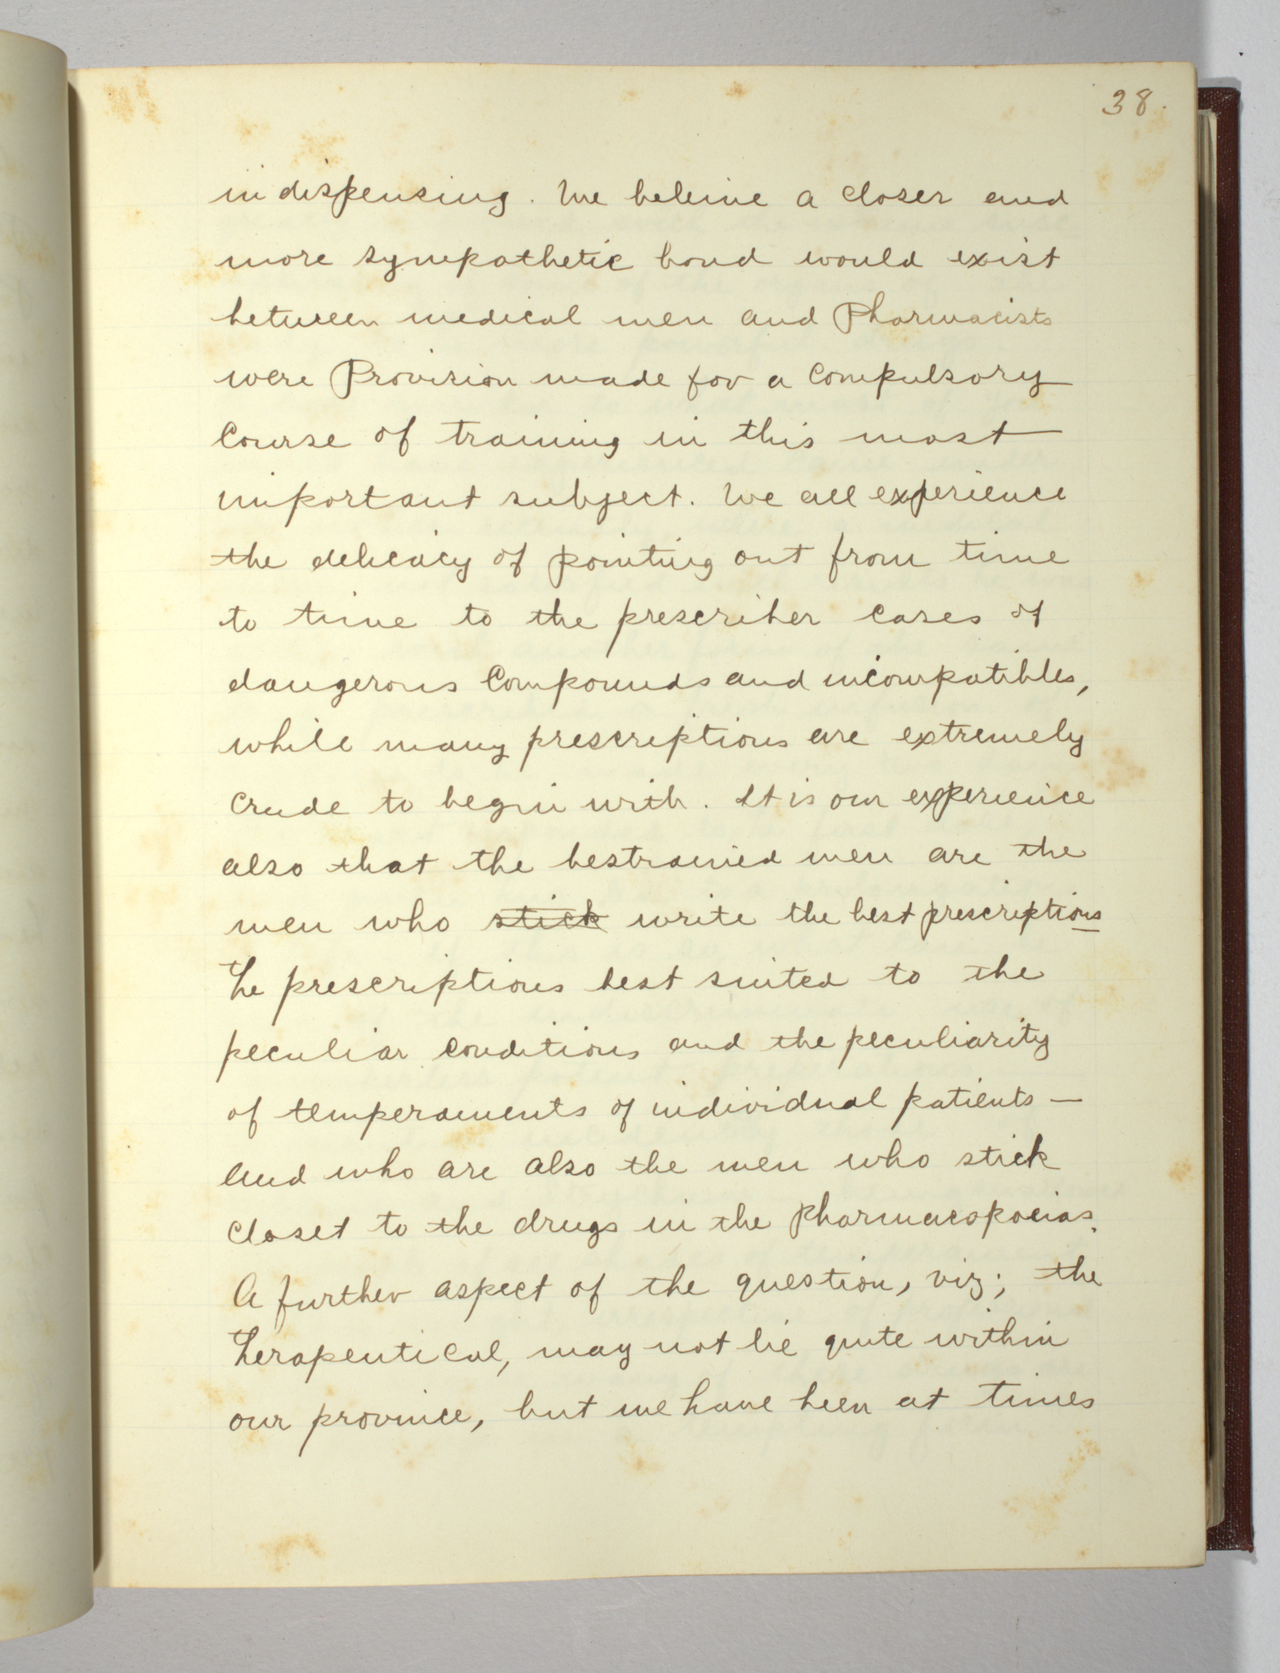 38.
in dispensing. We beleive a closer and
more sympathetic bond would exist
between medical men and Pharmacists
were Provision made for a Compulsory
Course of training in this most
important subject. We all experience
the delicacy of pointing out from time
to time to the prescriber cases of
dangerous Compounds and incompatibles,
while many prescriptions are extremely
crude to begin with. It is our experience
also that the bestrained men are the
men who stick write the best prescriptions
the prescriptions best suited to the
peculiar conditions and the peculiarity
of temperaments of individual patients —
and who are also the men who stick
closet to the drugs in the Pharmacopoeias.
A further aspect of the question, viz; the
therapeutical, may not lie quite within
our province, but we have been at times